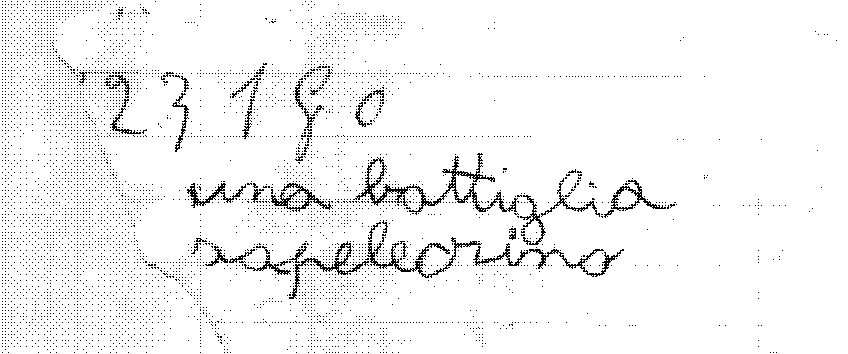 23180
una battiglia
sapellerino